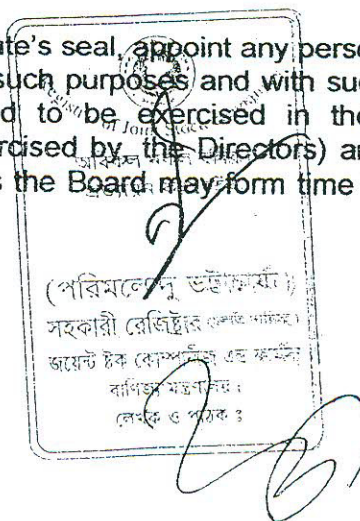 ate's seal, appoint any perso
such purposes and with suc
d to be exercised in the
rcised by the Directors) an
s the Board may form time
of Joint Stock
(পরিমলেন্দু ভট্টাচার্য্য)
সহকারী রেজিষ্ট্রার
জয়েন্ট ষ্টক কোম্পানিজ এন্ড ফার্মস
বাণিজ্য মন্ত্রণালয়।
লেখক ও পাঠক ঃ